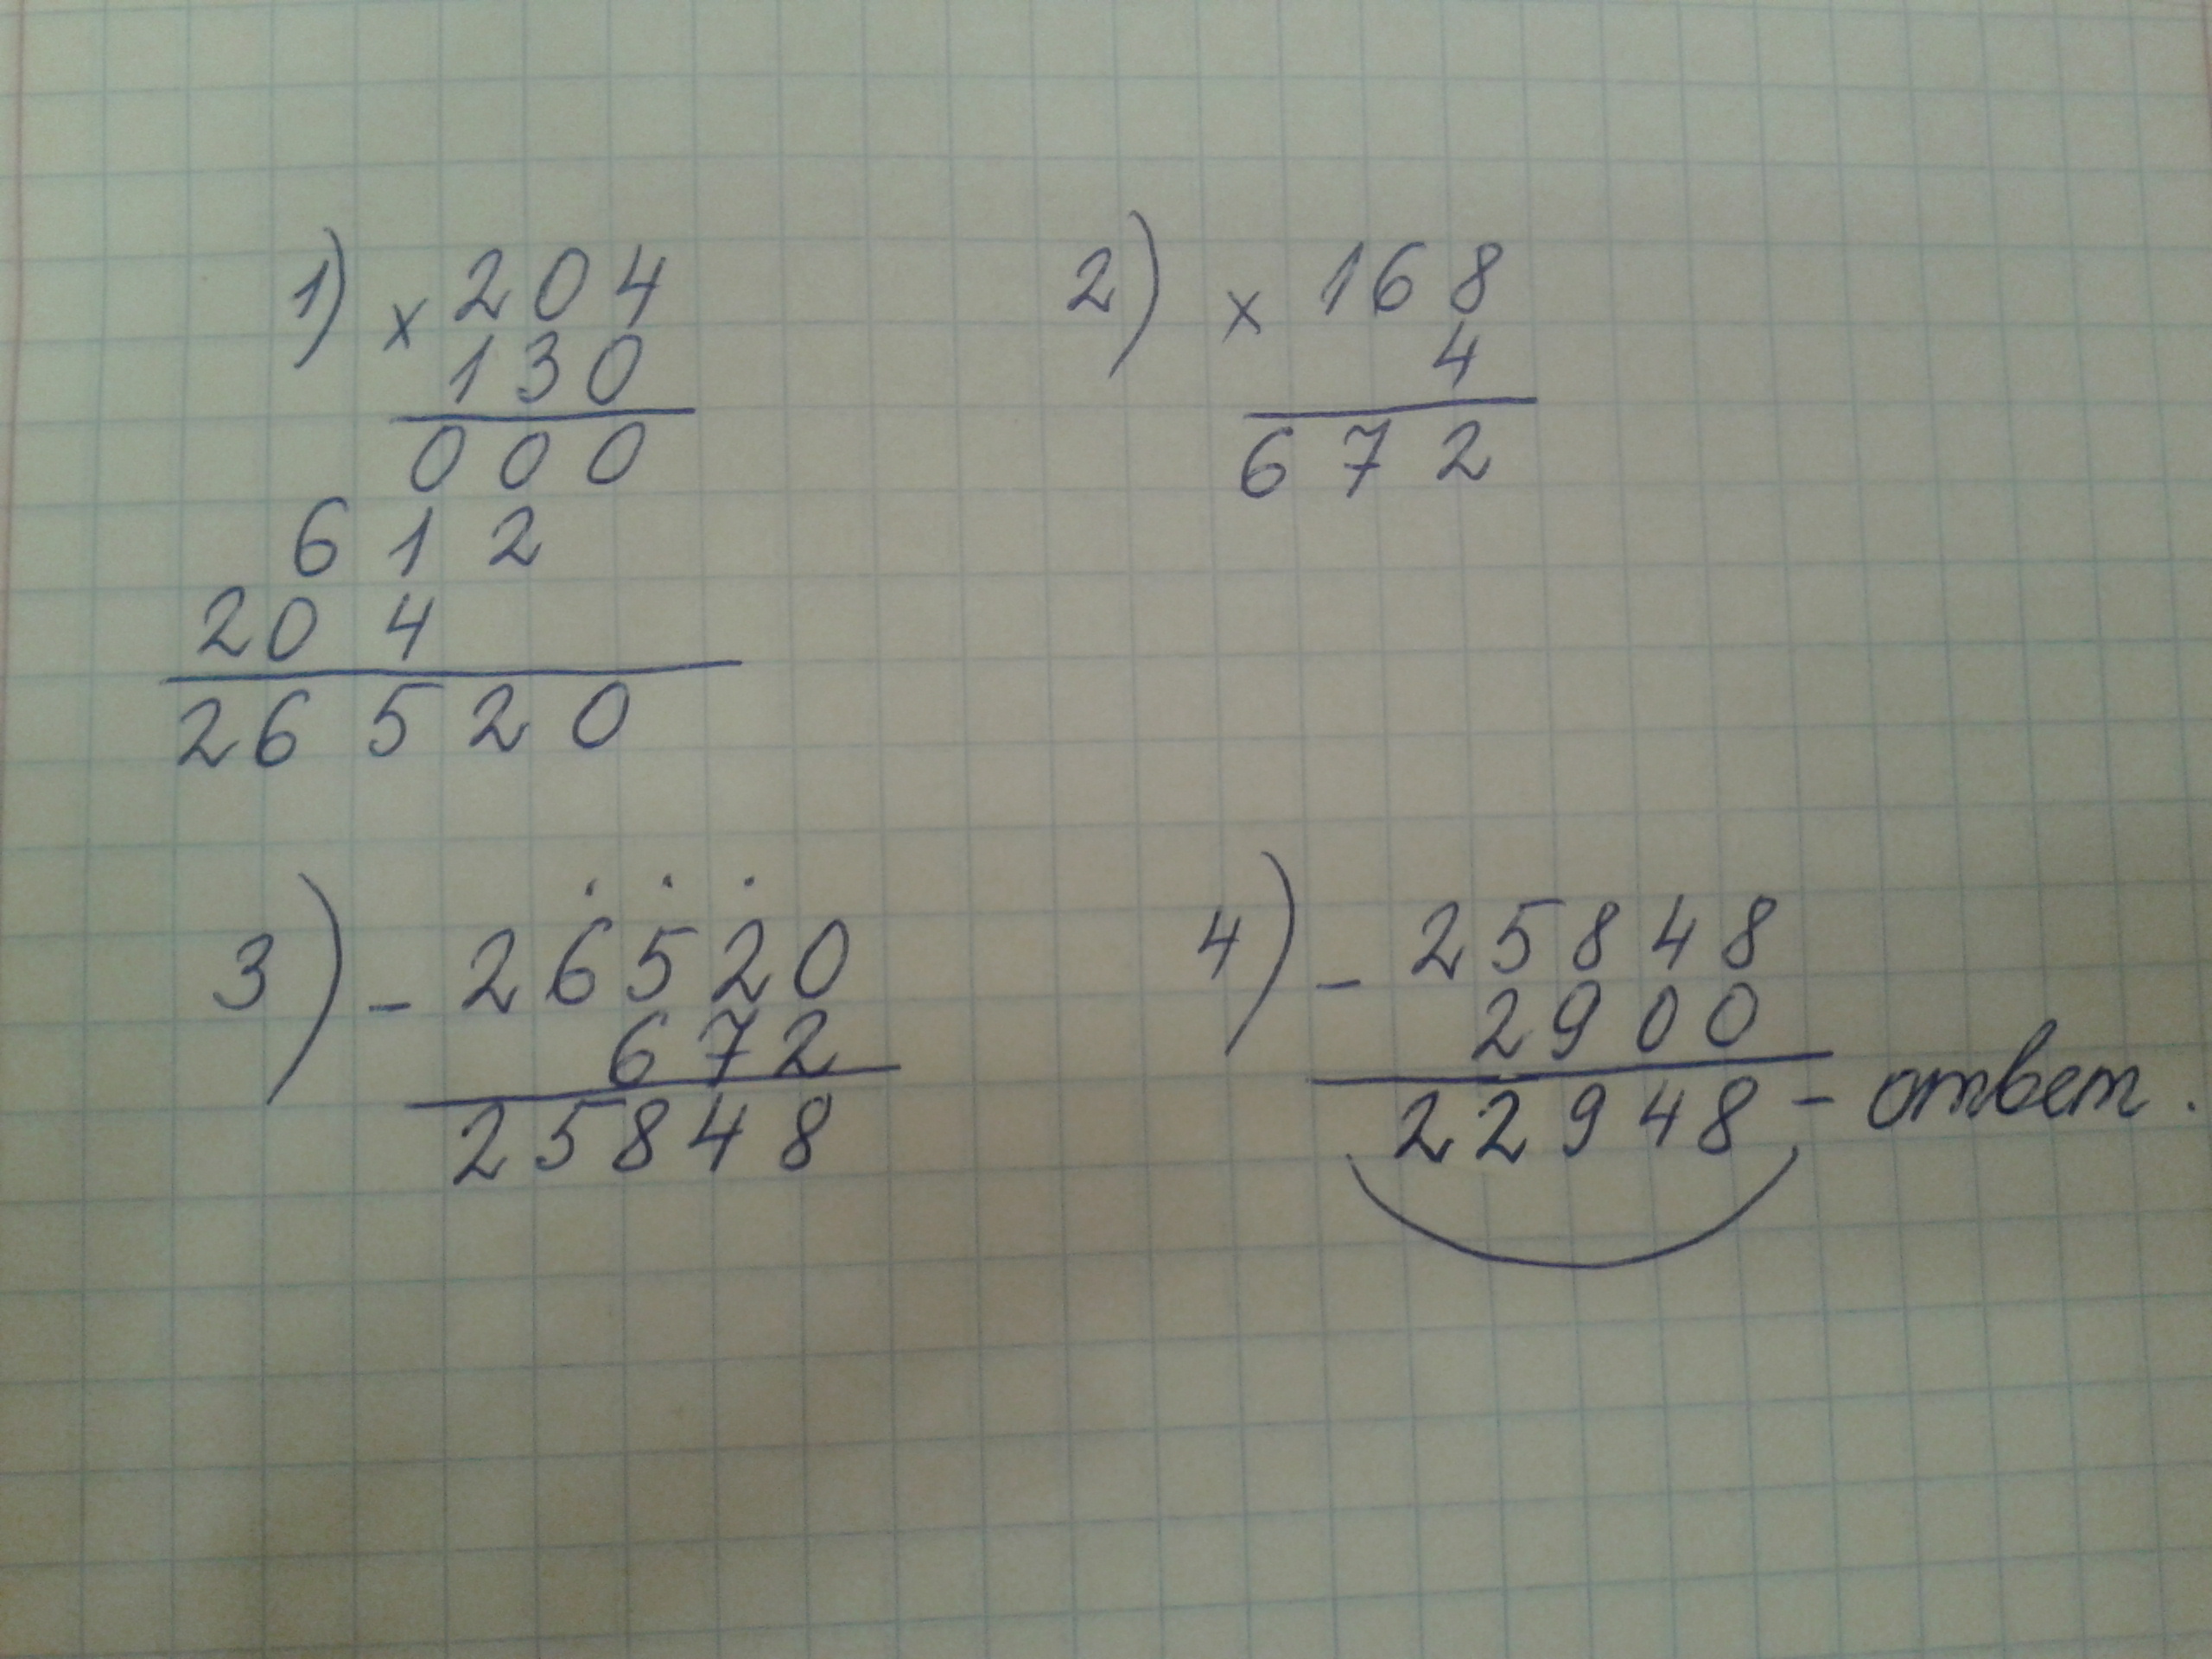 1) × 204
130
000
612
204
26520
2) × 168
4
672
3) - 26520
672
25848
4) - 25848
2900
22948 - ответ.